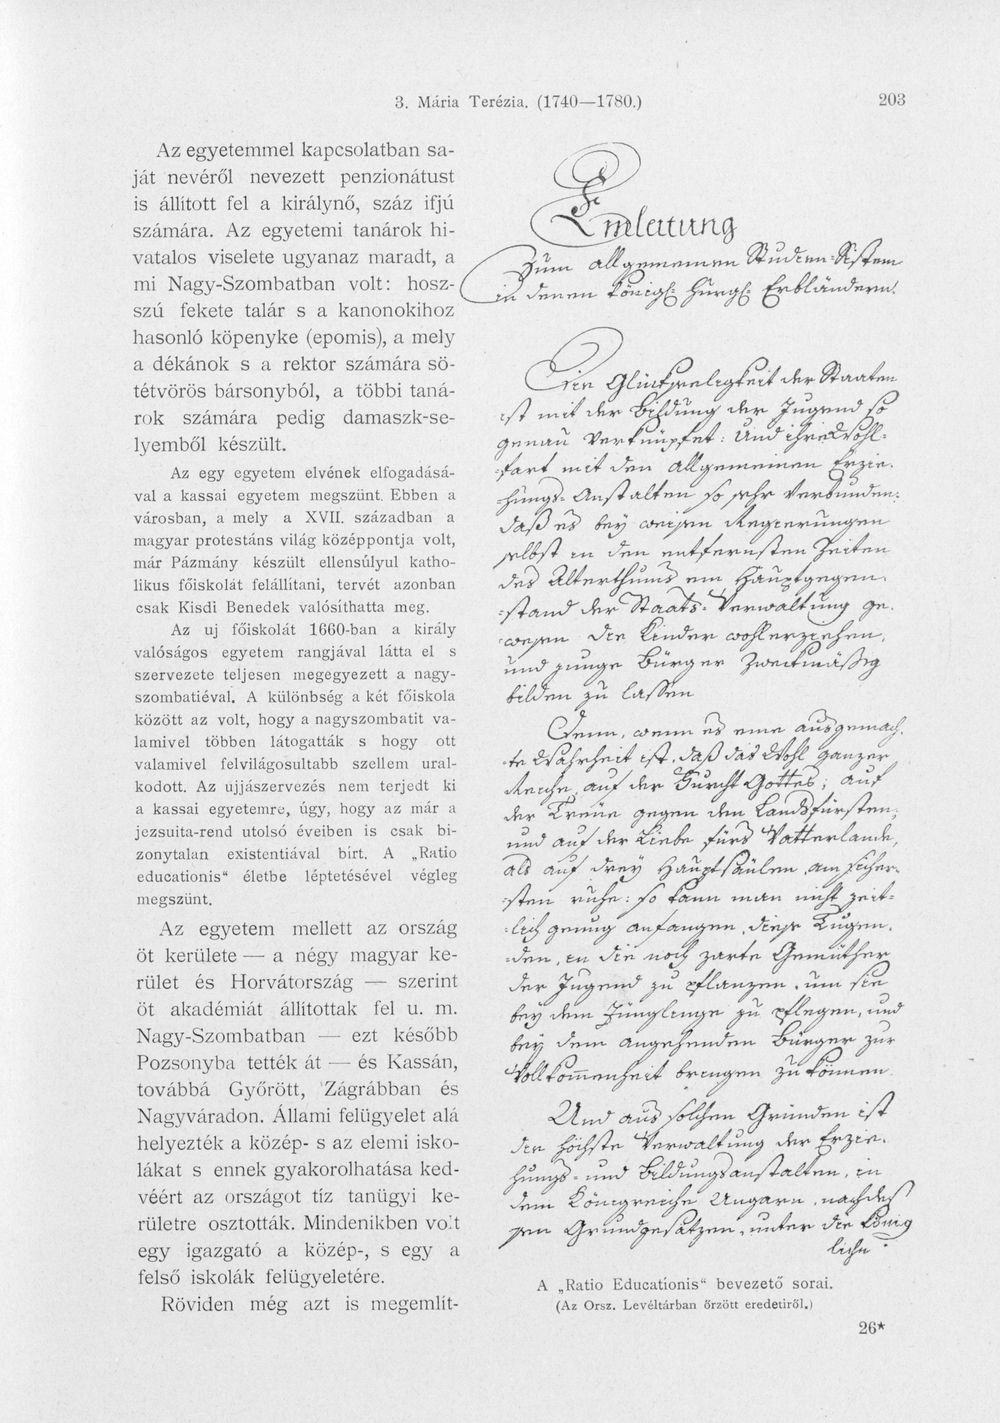 3. Mária Terézia. (1740—1780.)
203
Az egyetemmel kapcsolatban sa-
ját nevéről nevezett penzionátust
is állított fel a királynő, száz ifjú
számára. Az egyetemi tanárok hi-
vatalos viselete ugyanaz maradt, a
mi Nagy-Szombatban volt: hosz-
szú fekete talár s a kanonokihoz
hasonló köpenyke (epomis), a mely
a dékánok s a rektor számára sö-
tétvörös bársonyból, a többi taná-
rok számára pedig damaszk-se-
lyemből készült.
Az egy egyetem elvének elfogadásá-
val a kassai egyetem megszünt. Ebben a
városban, a mely a XVII. században a
magyar protestáns világ középpontja volt,
már Pázmány készült ellensúlyul katho-
likus főiskolát felállítani, tervét azonban
csak Kisdi Benedek valósíthatta meg.
Az uj főiskolát 1660-ban a király
valóságos egyetem rangjával látta el s
szervezete teljesen megegyezett a nagy-
szombatiéval. A különbség a két főiskola
között az volt, hogy a nagyszombatit va-
lamivel többen látogatták s hogy ott
valamivel felvilágosultabb szellem ural-
kodott. Az ujjászervezés nem terjedt ki
a kassai egyetemre, úgy, hogy az már a
jezsuita-rend utolsó éveiben is csak bi-
zonytalan existentiával bírt. A „Ratio
educationis“ életbe léptetésével végleg
megszünt.
Az egyetem mellett az ország
öt kerülete — a négy magyar ke-
rület és Horvátország — szerint
öt akadémiát állítottak fel u. m.
Nagy-Szombatban — ezt később
Pozsonyba tették át — és Kassán,
továbbá Győrött, Zágrábban és
Nagyváradon. Állami felügyelet alá
helyezték a közép- s az elemi isko-
lákat s ennek gyakorolhatása ked-
véért az országot tíz tanügyi ke-
rületre osztották. Mindenikben volt
egy igazgató a közép-, s egy a
felső iskolák felügyeletére.
Röviden még azt is megemlít-
Einleitung
Zum allgemeinen Studien-Sistem
in denen königl: hungl: Erbländern.
Die Glückseeligkeit der Staaten
ist mit der Bildung der Jugend so
genau verknüpfet: Und ihre Wohl-
fart mit den allgemeinen Erzie-
hungs-Anstalten so sehr verbunden:
daß es bey weisen Regierungen
selbst in den entfernsten Zeiten
des Alterthums ein Hauptgegen-
stand der Staats-Verwaltung ge-
wesen die Kinder wohl erziehen,
und junge Bürger zweckmäßig
bilden zu lassen
Denn, wenn es eine ausgemach-
te Wahrheit ist, daß das Wohl ganzer
Reiche, auf der Furcht Gottes; auf
der Treue gegen den Landsfürsten;
und auf der Liebe fürs Vatterlande,
als auf drey Hauptsäulen, am sicher-
sten ruhe: so kann man nicht zeit-
lich genug anfangen, diese Tugen-
den, in die noch zarte Gemüther
der Jugend zu pflanzen, um sie
bey dem Jünglinge zu pflegen, und
bey dem angehenden Bürger zur
Vollkommenheit bringen zu können.
Und aus solchen Gründen ist
die höchste Verwaltung der Erzie-
hungs- und Bildungsanstalten, in
dem Königreiche Ungarn, nach des-
sen Grundgesätzen, unter die König
liche
A „Ratio Educationis“ bevezető sorai.
(Az Orsz. Levéltárban őrzött eredetiről.)
26*